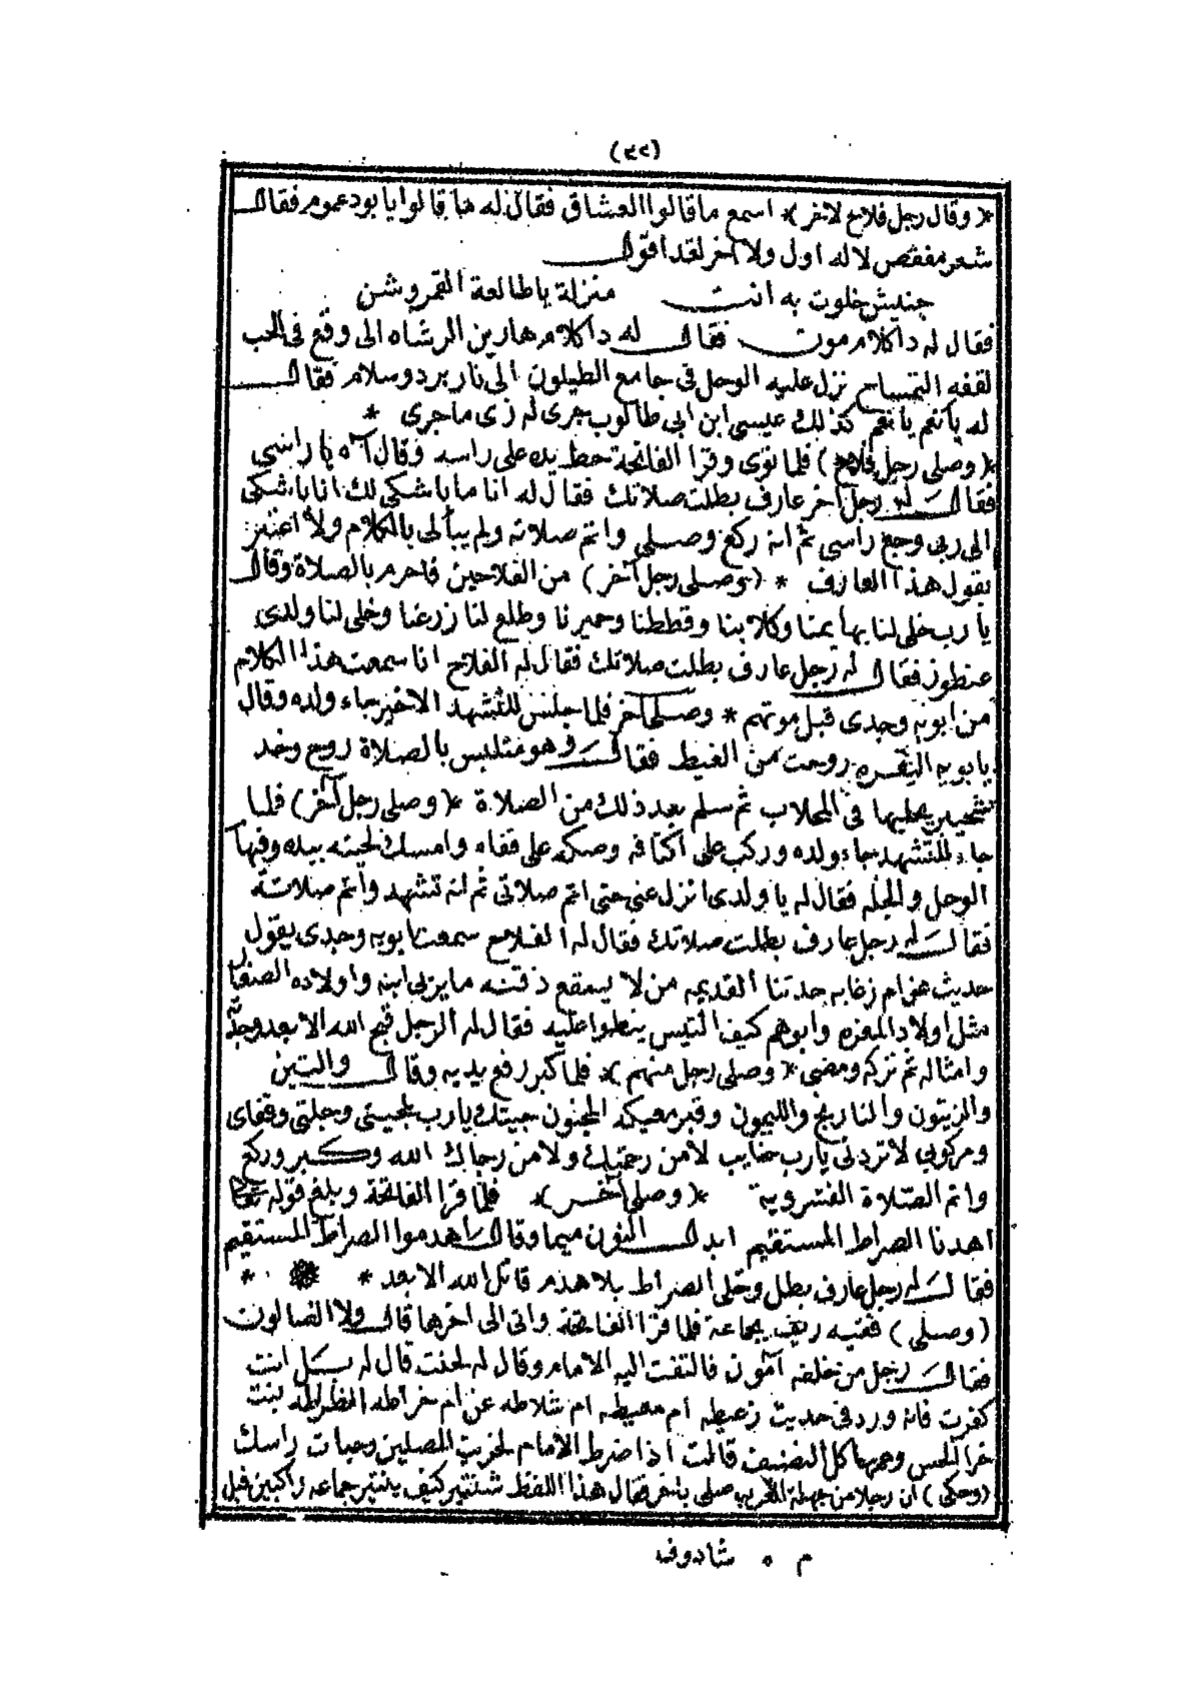 (٤٢)
* (وقال رجل فلاح لاخر) * اسمع ما قالوا العشاق فقال له ها قالوا يا بو دعموم فقال
شعر مفقص لا له اول ولا آخر لقد اقول
جنيش خلوت به انت منزلة يا طالعة القمروشن
فقال له دا كلام موت فقال له دا كلام هارين الرشاه الى وقع في الحب
لقفه التمساح نزل عليه الوحل في جامع الطيلون الى نار برد وسلام فقال
له يا نعم يا نعم كذلك عيسى ابن ابى طالوب جرى له زى ما جرى *
* (وصلى رجل فلاح) فلما نوى وقرا الفاتحة حط يده على راسه وقال آه يا راسى
فقال له رجل آخر عارف بطلت صلاتك فقال له انا ما باشكى لك انا باشكى
الى ربى وجع راسى ثم انه ركع وصلى واتم صلاته ولم يبالى بالكلام ولا اعتبر
بقول هذا العارف * (وصلى رجل آخر) من الفلاحين فاحرم بالصلاة وقال
يا رب خلى لنا بهايمنا وكلابنا وقططنا وحميرنا وطلع لنا زرعنا وخلى لنا ولدى
عنطوز فقال له رجل عارف بطلت صلاتك فقال له الفلاح انا سمعت هذا الكلام
من ابويه وجدى قبل موتهم * وصلى آخر فلما جلس للتشهد الاخير جاء ولده وقال
يا بويه البقره روحت من الغيط فقال وهو متلبس بالصلاة روح وخد
يحلبها في المحلاب ثم سلم بعد ذلك من الصلاة * (وصلى رجل آخر) فلما
جاء للتشهد جاء ولده وركب على اكتافه وصكه على قفاه وامسك لحيته بيده وفيها
الوحل والجله فقال له يا ولدى انزل عنى حتى اتم صلاتى ثم انه تشهد واتم صلاته
فقال له رجل عارف بطلت صلاتك فقال له الفلاح سمعت ابويه وجدى يقول
حديث عن ام زغابه جدتنا القديمه من لا يسقع ذقنه ما يربى ابنه واولاده الصغار
مثل اولاد المعزه وابوهم كيف التيس ينطوا عليه فقال له الرجل قبح الله الابعد وجده
وامثاله ثم تركه ومضى * (وصلى رجل منهم) * فلما كبر رفع يديه وقال والتين
والزيتون والنارنج والليمون وقبر معيكه المجنون جيتك يا رب بلحيتى وجلتى وقفاى
ومركوبى لا تردنى يا رب خايب لا من رحمتك ولا من رجاك الله وكبر وركع
واتم الصلاة القشرويه * (وصلى آخر) * فلما قرا الفاتحة وبلغ قوله تعالى
اهدنا الصراط المستقيم ابدل النون ميما وقال اهدموا الصراط المستقيم
فقال له رجل عارف بطل وخلى الصراط بلا هدم قاتل الله الابعد * *
(وصلى) فقيه ريف بجماعة فلما قرا الفاتحة واتى الى اخرها قال ولا الضالون
فقال رجل من خلفه آمون فالتفت اليه الامام وقال له لحنت قال له بل انت
كفرت فانه ورد في حديث زعيطه ام معيطه ام شلاطه عن ام خراطه الظراطه بنت
خرا الحس وعمها كل النضيف قالت اذا ضرط الامام لخريت المصلين وحيات راسك
(وحكى) ان رجلا من جهلة الغرب صلى باخر فقال هذا اللفظ شنتير كيف ينتير جماعه راكبين فيل
م ٥ شادوف